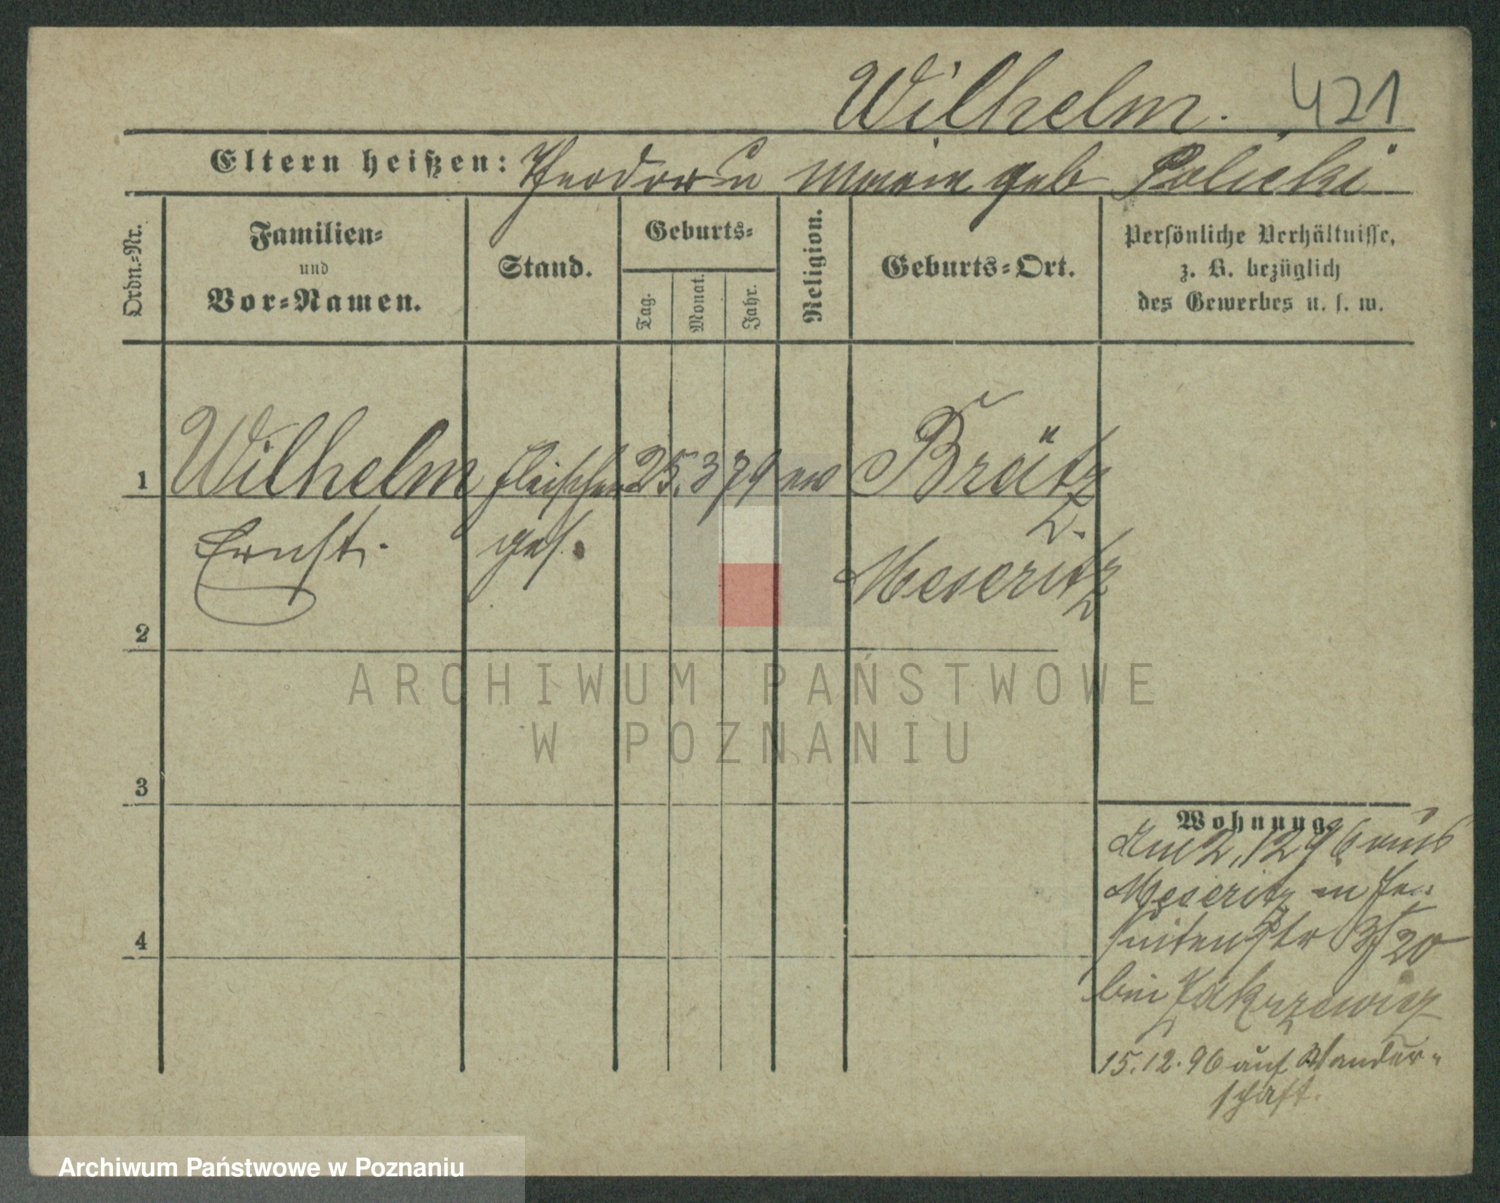 Wilhelm. 421
Eltern heißen: Theodor u Marie geb Policki
Ordn.-Nr.
Familien-
und
Vor-Namen.
Stand.
Geburts-
Tag.
Monat.
Jahr.
Religion.
Geburts-Ort.
Persönliche Verhältnisse,
z. B. bezüglich
des Gewerbes u. s. w.
1 Wilhelm Fleischer 25. 3 79 ev Brätz
Ernst. ges. 
Meseritz
2
3
4
Wohnung.
Am 2. 12 96 aus
Meseritz in Je-
suitenstr 20
bei
15. 12. 96 auf Wander-
schaft.
ARCHIWUM PAŃSTWOWE
W POZNANIU
Archiwum Państwowe w Poznaniu